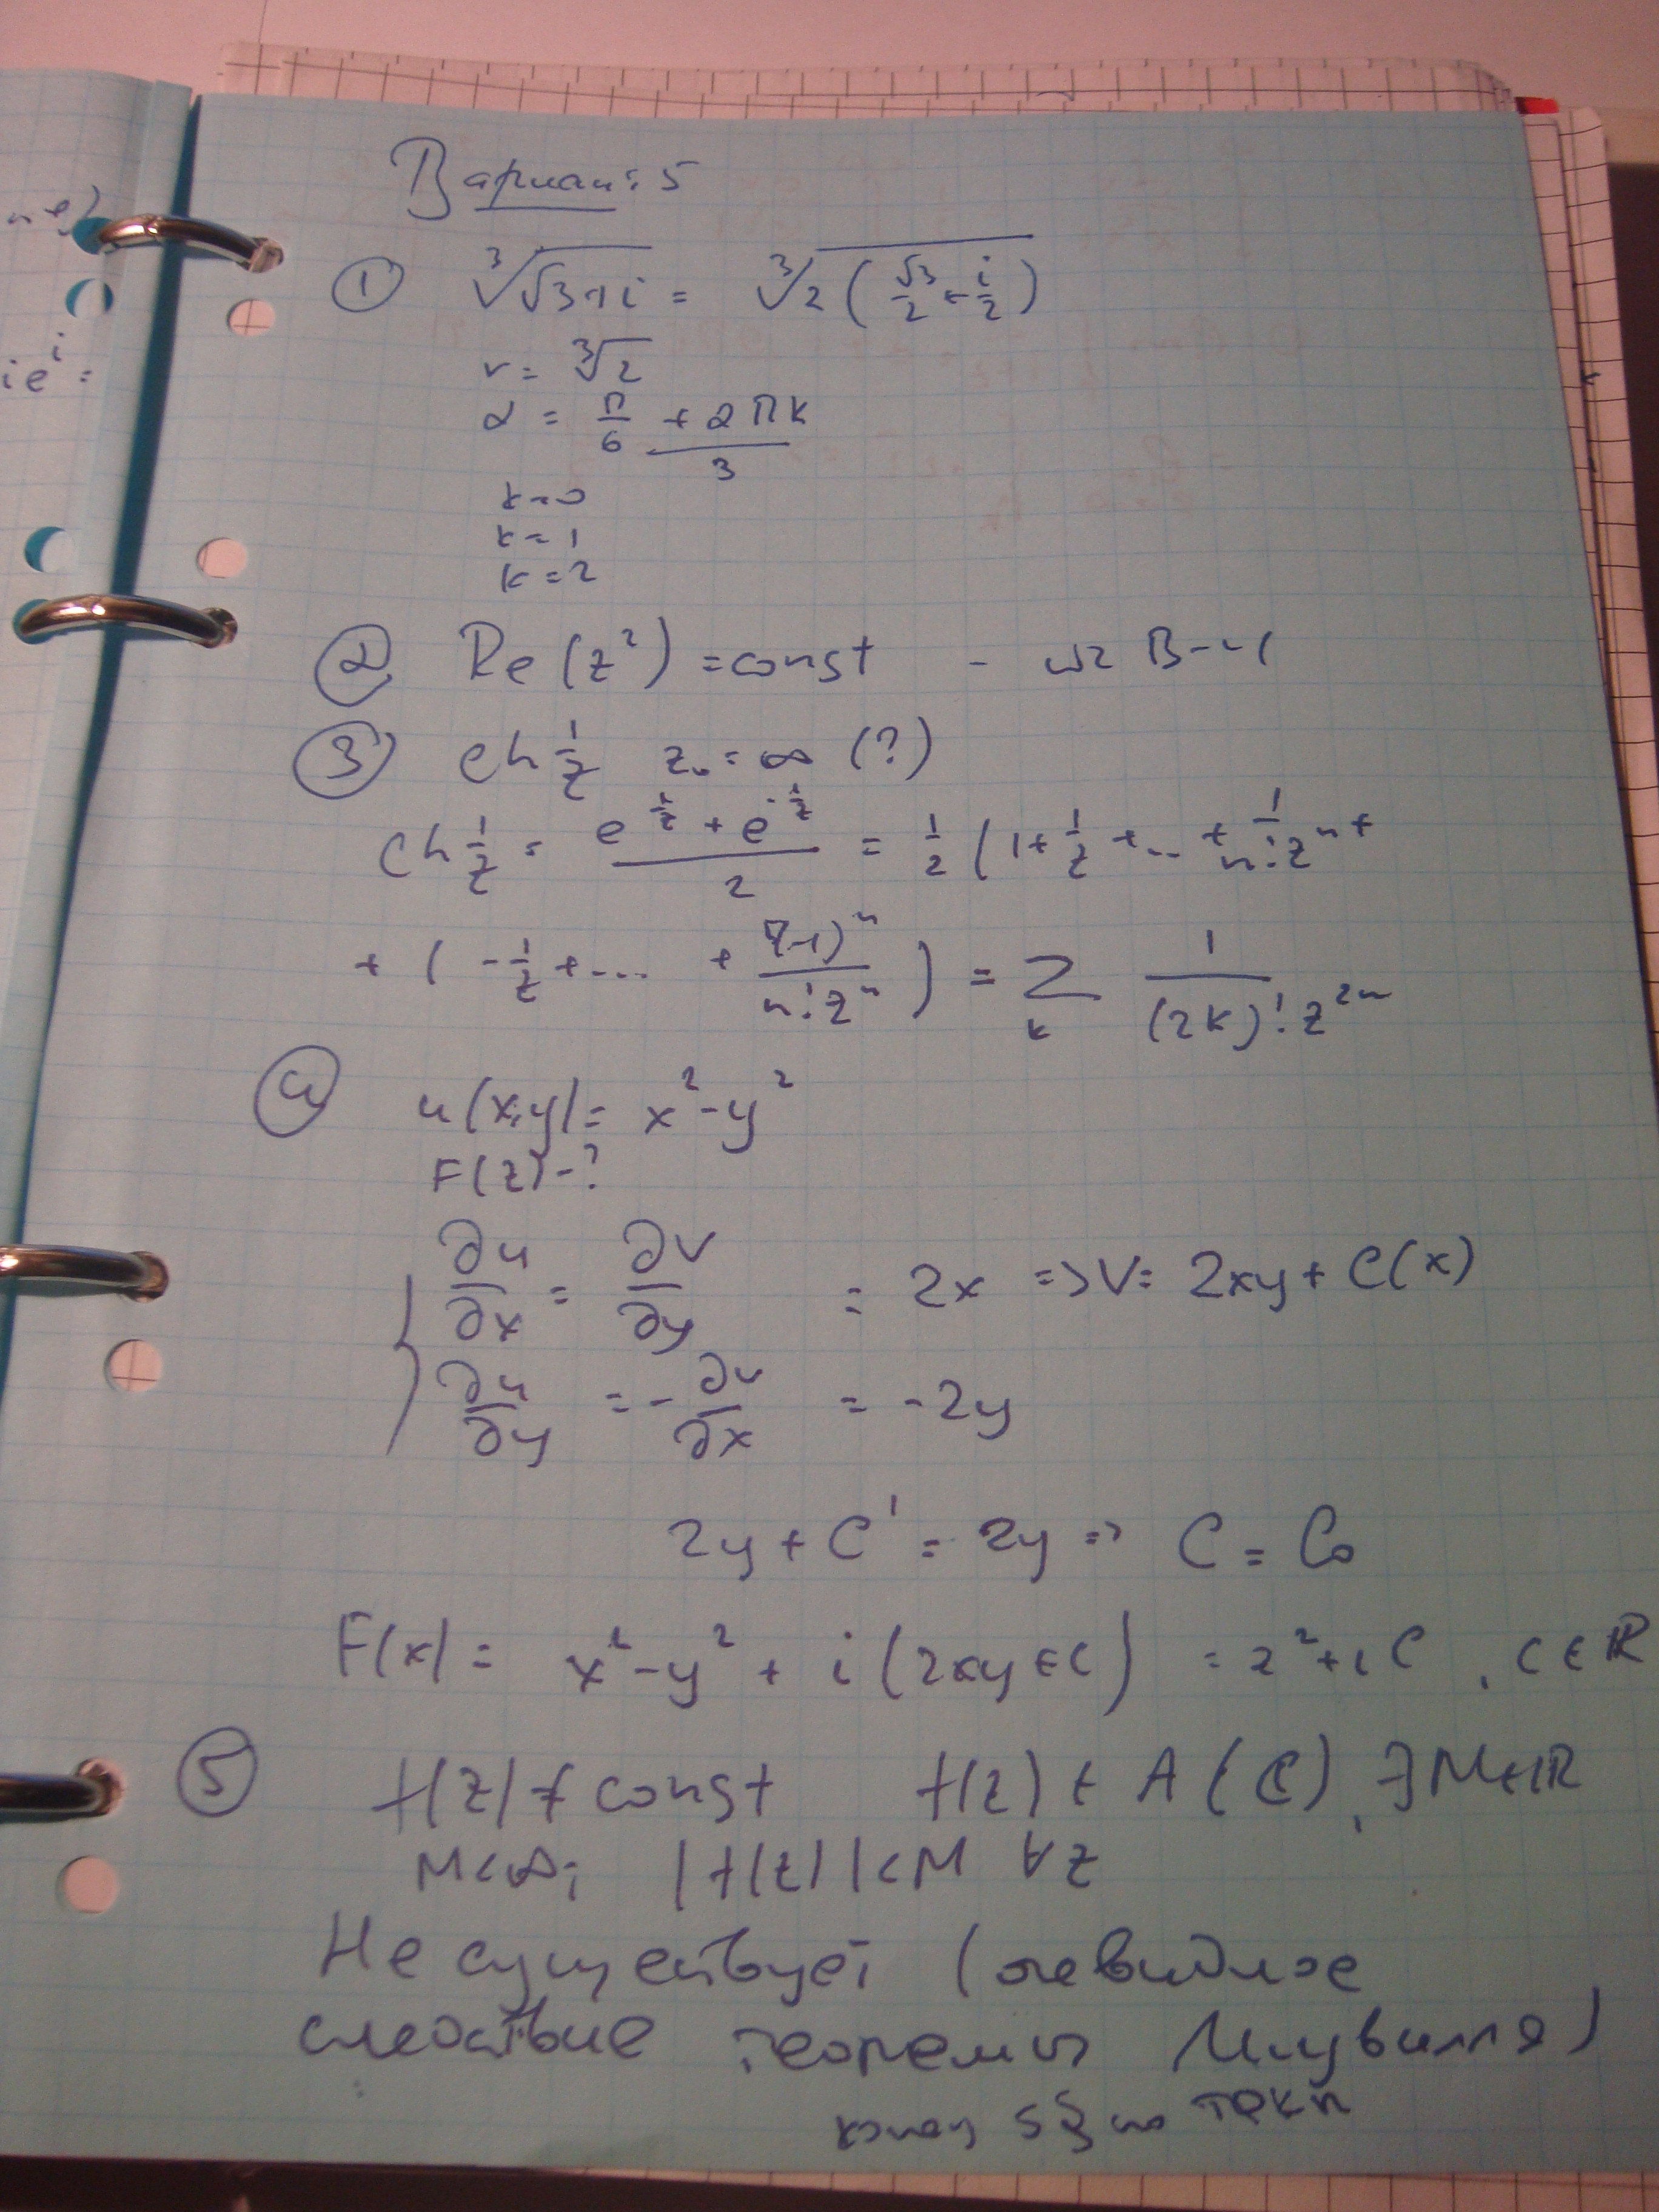 Вариант 5
① ∛(√3+i) = ∛(2(√3/2 + i/2))
r = ∛2
α = π/6 + 2πk / 3
k=0
k=1
k=2
② Re(z²) = const - из В-
③ ch 1/z z₀ = ∞ (?)
ch 1/z = (e^(1/z) + e^(-1/z))/2 = 1/2 (1 + 1/z + ... + 1/(n! zⁿ) +
+ ( - 1/z + ... + (-1)ⁿ/(n! zⁿ) ) = Σ_k 1/((2k)! z²ⁿ)
④ u(x,y) = x² - y²
F(z) - ?
∂u/∂x = ∂v/∂y = 2x => V = 2xy + C(x)
∂u/∂y = -∂v/∂x = -2y
2y + C' = 2y => C = C₀
F(x) = x² - y² + i(2xy + C) = z² + iC, C ∈ ℝ
⑤ f(z) ≠ const f(z) ∈ A(ℂ), ∃ M ∈ ℝ
M < ∞; |f(z)| < M ∀z
Не существует (очевидное
следствие теоремы Лиувилля)
конец 5§ по
ie^i =